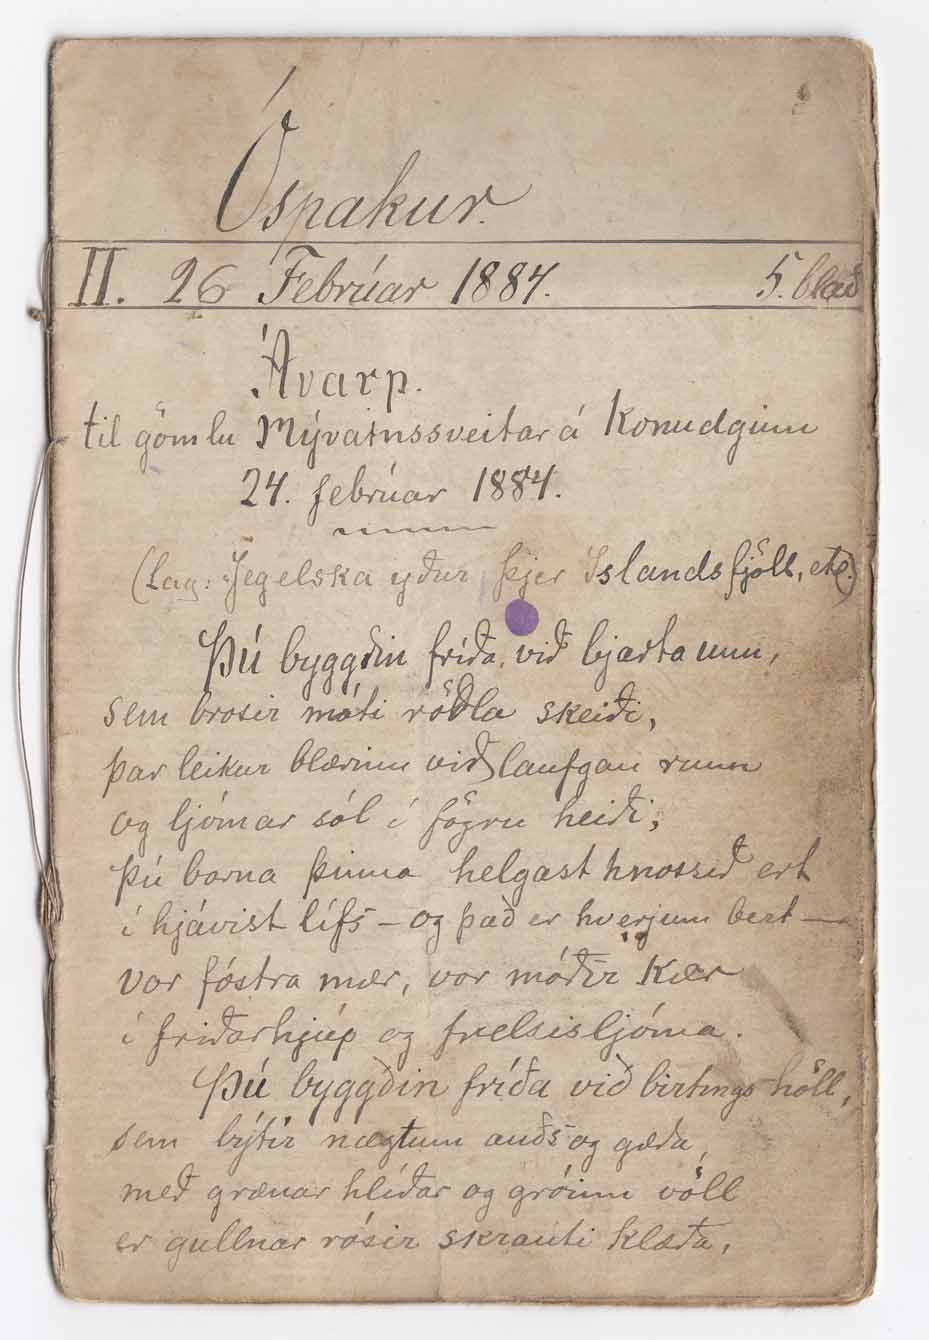 Óspakur.
II. 26 Febrúar 1884. 5. blað
Ávarp.
til gömlu Mývatnssveitar á Konudginn
24. febrúar 1884.
(Lag: Jeg elska yður þjer Íslandsfjöll, etc.)
Þú byggðin fríða, við bjarta unn,
sem brosir móti röðla skeiði,
þar leikur blærinn við laufgan runn
og ljómar sól í fögru heiði;
þú barna þinna helgast hnossið ert
í hjávist lífs – og það er hverjum bert –
vor fóstra mær, vor móðir kær
í friðarhjúp og frelsisljóma.
Þú byggðin fríða við birtings höll,
sem býtir nægtum auðs og gæða,
með grænar hlíðar og gróinn völl
er gullnar rósir skrauti klæða,